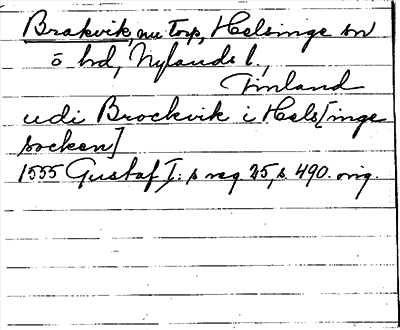 Brakvik, nu Torp, Helsinge sn
ö hd, Nylands l.,
Finland
udi Brockvik i Hels[inge
socken]
1555 Gustaf I:s reg. 25, s. 490. orig.